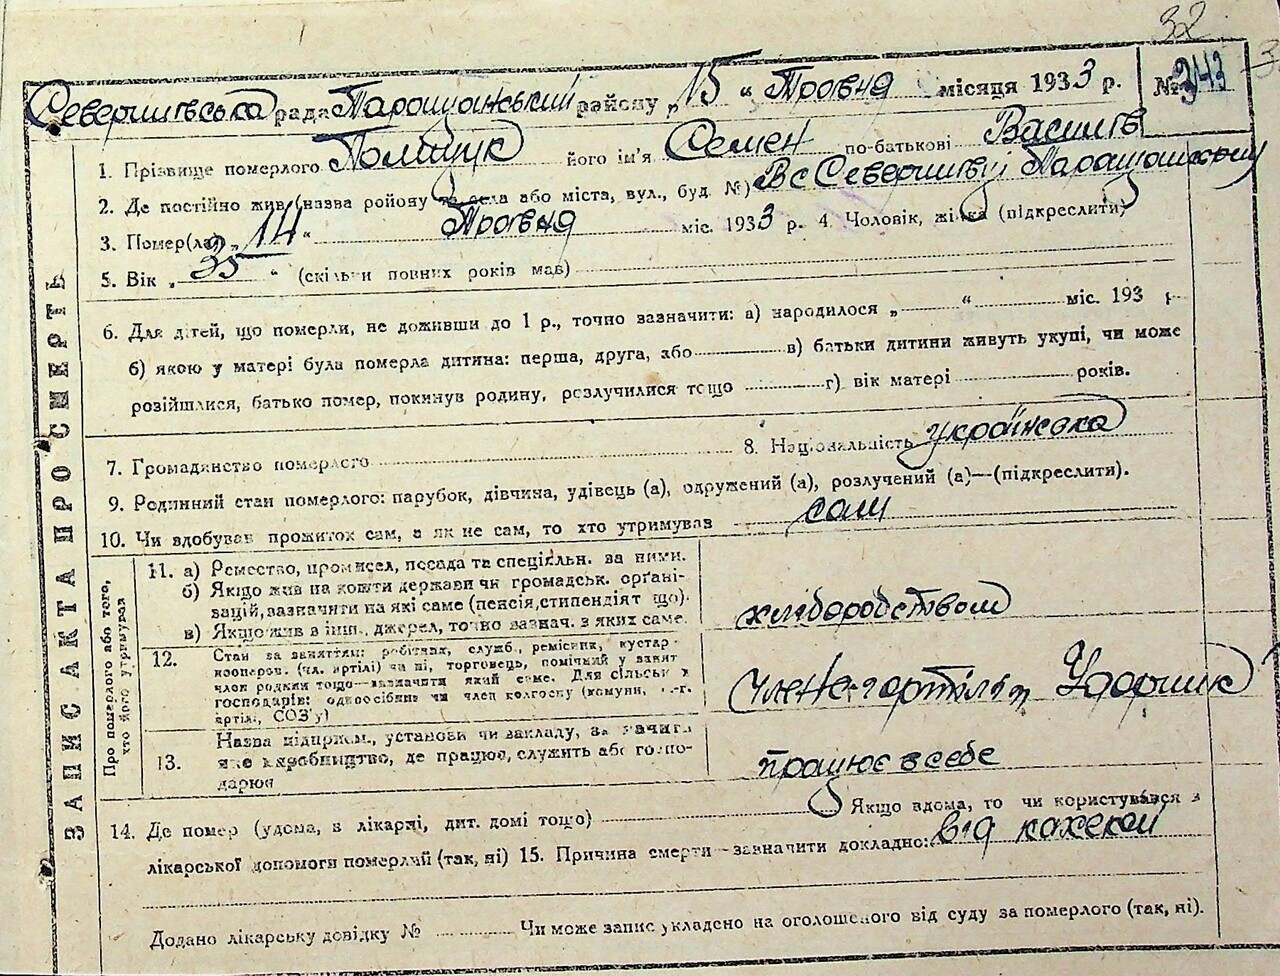 32
Северинівська рада Таращанський району „15“ Травня місяця 1933 р. № 343
1. Прізвище померлого Поліщук його ім'я Семен по-батькові Василів
2. Де постійно жив (назва району та села або міста, вул., буд. №) В с Северинівці Таращанському
3. Помер(ла) „14“ Травня міс. 1933 р. 4. Чоловік, жінка (підкреслити)
5. Вік „35“ (скільки повних років мав)
6. Для дітей, що померли, не доживши до 1 р., точно зазначити: а) народилося „ “ міс. 193 р.
б) якою у матері була померла дитина: перша, друга, або в) батьки дитини живуть укупі, чи може
розійшлися, батько помер, покинув родину, розлучилися тощо г) вік матері років.
7. Громадянство померлого 8. Національність українська
9. Родинний стан померлого: парубок, дівчина, удівець (а), одружений (а), розлучений (а)—(підкреслити).
10. Чи здобував прожиток сам, а як не сам, то хто утримував сам
ЗАПИС АКТА ПРО СМЕРТЬ
Про померлого або того,
хто його утримував
11. а) Ремество, промисел, посада та спеціяльн. за ними.
б) Якщо жив на кошти держави чи громадськ. орґані-
зацій, зазначити на які саме (пенсія, стипендіят що).
в) Якщо жив з інш. джерел, точно зазнач. з яких саме.
хліборобством
12. Стан за заняттям: робітник, служб., ремісник, кустар-
кооперов. (чл. артілі) чи ні, торговець, помічний у занят
член родини тощо—зазначити який саме. Для сільськ х
господарів: одноосібник чи член колгоспу (комуни, с.-г.
артілі, СОЗ'у)
член с.г артілі Ударник
13. Назва підприєм., установи чи закладу, зазначити
яке виробництво, де працює, служить або госпо-
дарює
працює в себе
14. Де помер (удома, в лікарні, дит. домі тощо) Якщо вдома, то чи користувався з
лікарської допомоги померлий (так, ні) 15. Причина смерти—зазначити докладно: від кахексії
Додано лікарську довідку № Чи може запис укладено на оголошеного від суду за померлого (так, ні).